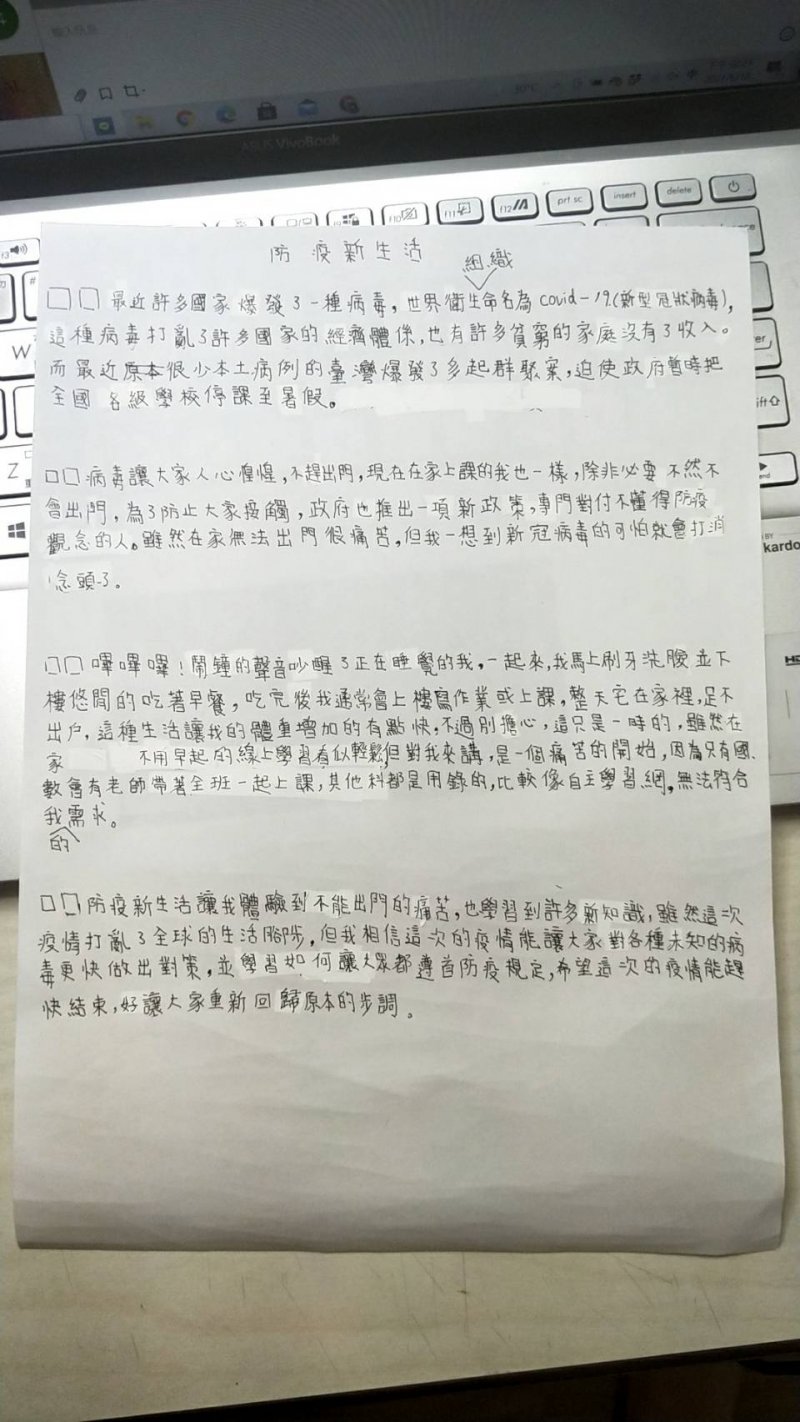 ASUS VivoBook
f3
f10
f11
f12
prt sc
insert
delete
W
Z
ift
BY
kardo
防疫新生活
組織
□□最近許多國家爆發了一種病毒，世界衛生命名為covid-19(新型冠狀病毒)，
這種病毒打亂了許多國家的經濟體係，也有許多貧窮的家庭沒有了收入。
而最近原本很少本土病例的臺灣爆發了多起群聚案，迫使政府暫時把
全國各級學校停課至暑假。
□□病毒讓大家人心惶惶，不趕出門，現在在家上課的我也一樣，除非必要不然不
會出門，為了防止大家接觸，政府也推出一項新政策，專門對付不懂得防疫
觀念的人。雖然在家無法出門很痛苦，但我一想到新冠病毒的可怕就會打消
念頭了。
□□嗶嗶嗶！鬧鐘的聲音吵醒了正在睡覺的我，一起來，我馬上刷牙洗臉並下
樓悠閒的吃著早餐，吃完後我通常會上樓寫作業或上課，整天宅在家裡，足不
出戶，這種生活讓我的體重增加的有點快，不過別擔心，這只是一時的，雖然在
家 不用早起的線上學習看似輕鬆，但對我來講，是一個痛苦的開始，因為只有國、
數會有老師帶著全班一起上課，其他科都是用錄的，比較像自主學習網，無法符合
我需求。
的
□□防疫新生活讓我體驗到不能出門的痛苦，也學習到許多新知識，雖然這次
疫情打亂了全球的生活腳步，但我相信這次的疫情能讓大家對各種未知的病
毒更快做出對策，並學習如何讓大眾都遵首防疫規定，希望這次的疫情能趕
快結束，好讓大家重新回歸原本的步調。